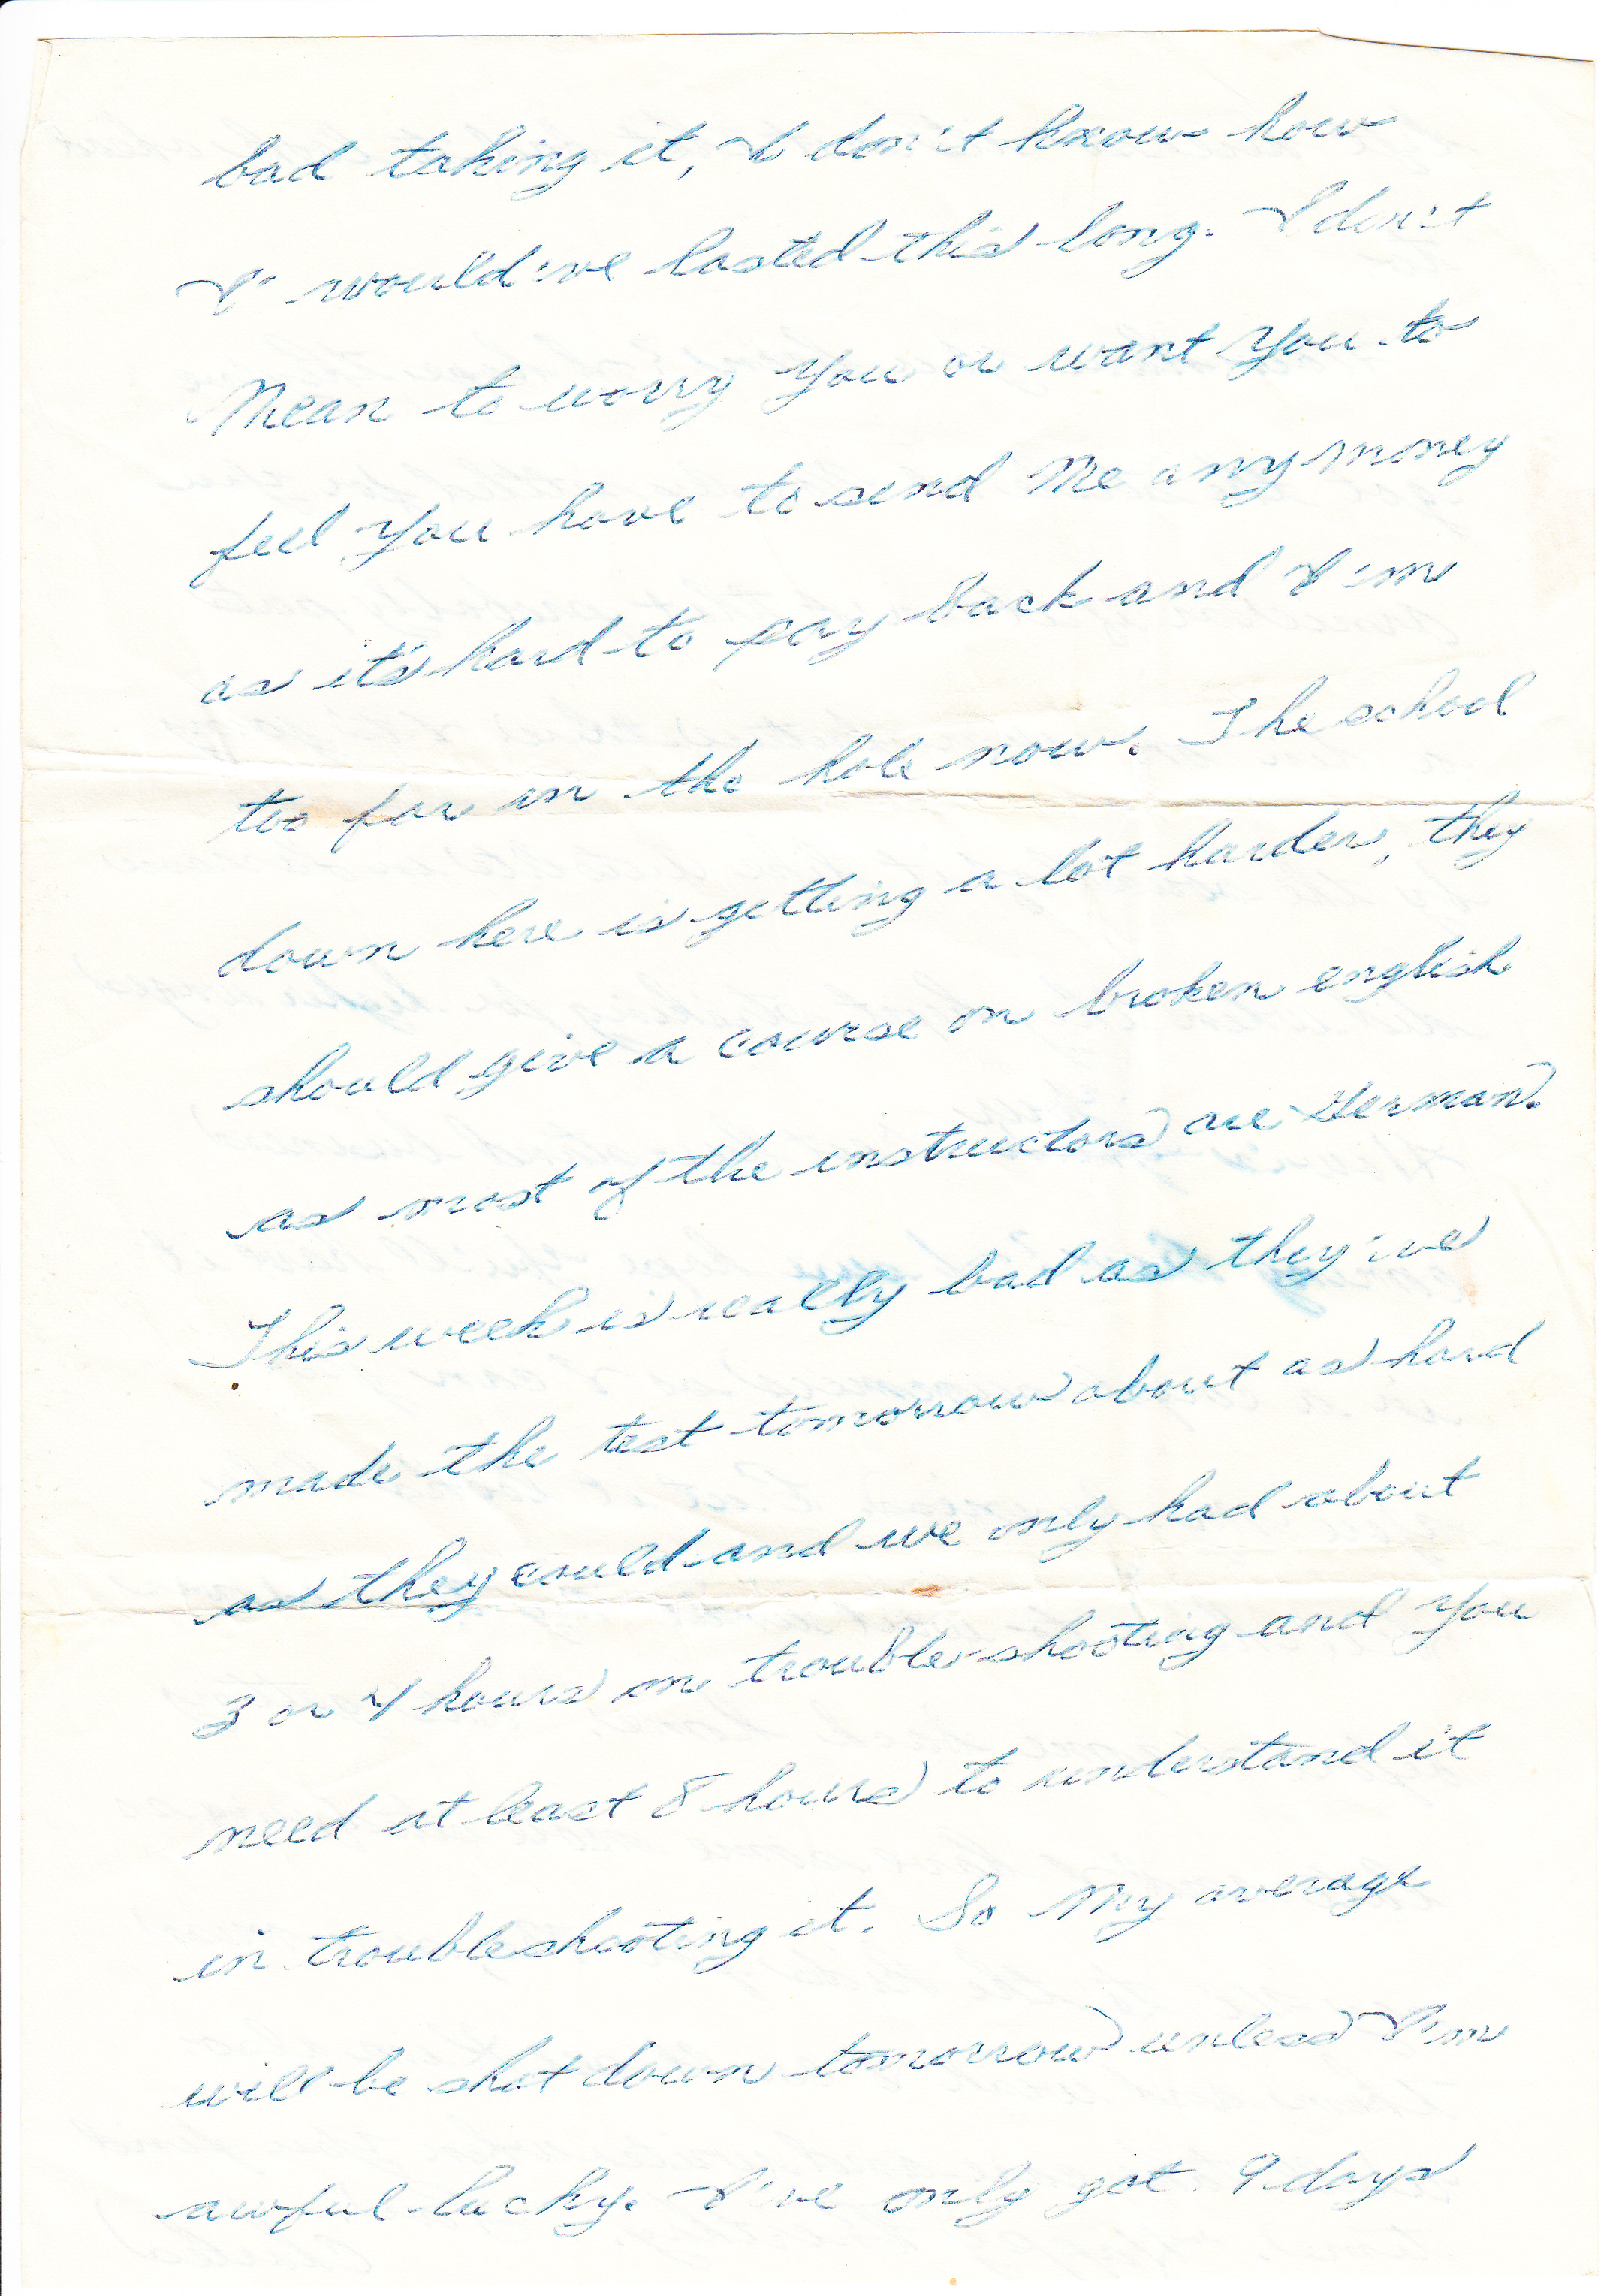 bad taking it, I don't know how
I would've lasted this long. I don't
Mean to worry You or want You to
feel You have to send Me any money
as it's hard to pay back and I'm
too far in the hole now. The school
down here is getting a lot harder, they
should give a course on broken english
as most of the instructors are German.
This week is really bad as they've
made the test tomorrow about as hard
as they could and we only had about
3 or 4 hours on trouble shooting and You
need at least 8 hours to understand it
in trouble shooting it. So My average
will be shot down tomorrow unless I'm
awful lucky. I've only got 9 days